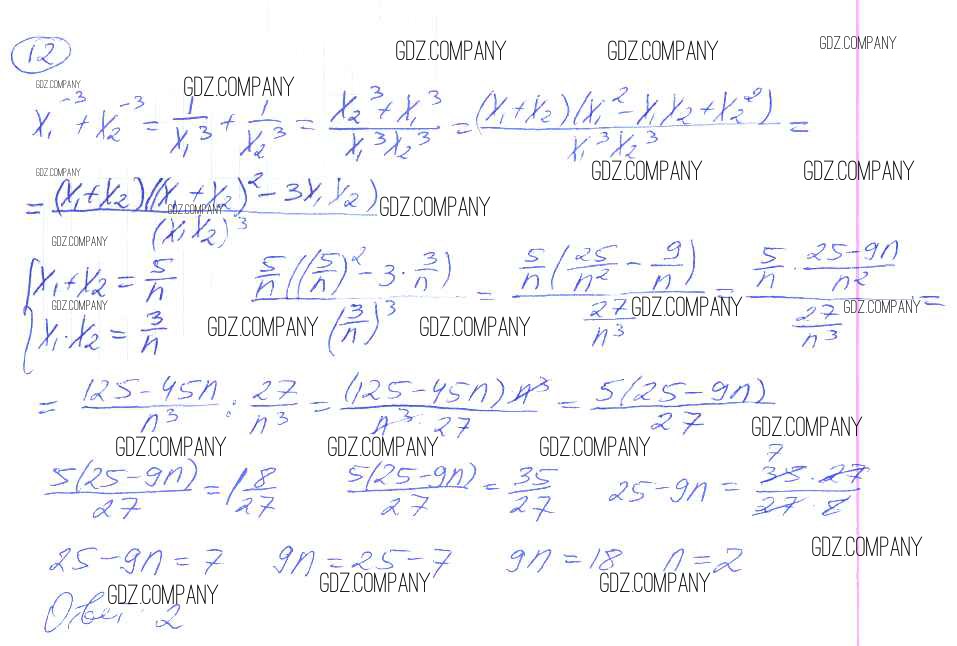 12
GDZ.COMPANY GDZ.COMPANY GDZ.COMPANY
GDZ.COMPANY GDZ.COMPANY
x₁⁻³ + x₂⁻³ = 1/x₁³ + 1/x₂³ = (x₂³ + x₁³)/(x₁³x₂³) = (x₁+x₂)(x₁² - x₁x₂ + x₂²)/(x₁³x₂³) =
GDZ.COMPANY GDZ.COMPANY GDZ.COMPANY
= (x₁+x₂)((x₁+x₂)² - 3x₁x₂)/(x₁x₂)³ GDZ.COMPANY GDZ.COMPANY
GDZ.COMPANY
{ x₁+x₂ = 5/n
x₁·x₂ = 3/n
5/n((5/n)² - 3·3/n)/(3/n)³ = 5/n(25/n² - 9/n)/(27/n³) = (5/n · (25-9n)/n²)/(27/n³) =
GDZ.COMPANY GDZ.COMPANY GDZ.COMPANY GDZ.COMPANY GDZ.COMPANY
= (125-45n)/n³ : 27/n³ = (125-45n)n³/(n³·27) = 5(25-9n)/27
GDZ.COMPANY GDZ.COMPANY GDZ.COMPANY GDZ.COMPANY
5(25-9n)/27 = 1 8/27 5(25-9n)/27 = 35/27 25-9n = 7
25-9n = 7 9n = 25-7 9n = 18 n = 2
GDZ.COMPANY
GDZ.COMPANY GDZ.COMPANY GDZ.COMPANY
Ответ: 2